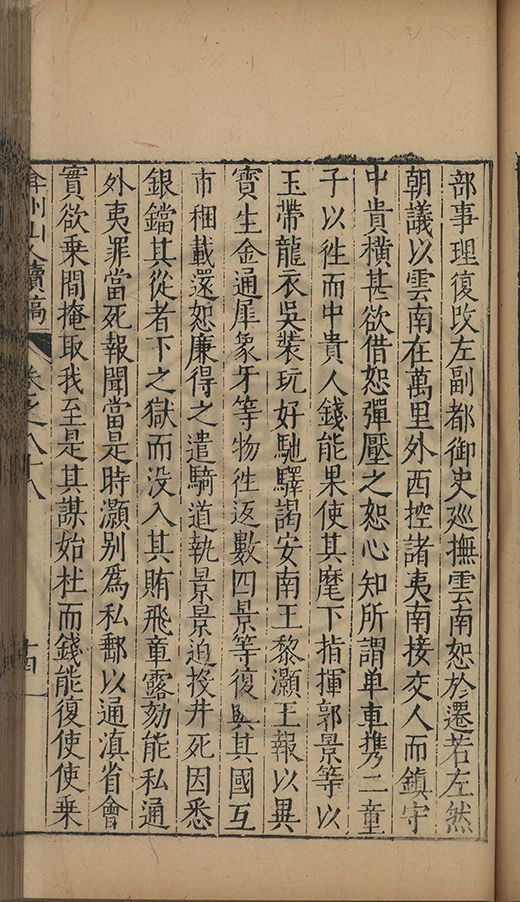 部事理復改左副都御史廵撫雲南恕於遷若左然
朝議以雲南在萬里外西控諸夷南接交人而鎮守
中貴橫甚欲借恕彈壓之恕心知所謂单車携二童
子以徃而中貴人錢能果使其麾下指揮郭景等以
玉帶龍衣吳裝玩好馳驛謁安南王黎灝王報以異
寳生金通犀象牙等物徃返數四景等復與其國互
市稛載還恕廉得之遣騎道執景景迫投井死因悉
銀鐺其從者下之獄而没入其賄飛章露劾能私通
外夷罪當死報聞當是時灝别爲私郵以通滇省會
實欲乗間掩取我至是其謀始杜而錢能復使使乗
弇州山人續稿
卷之八十八
十四